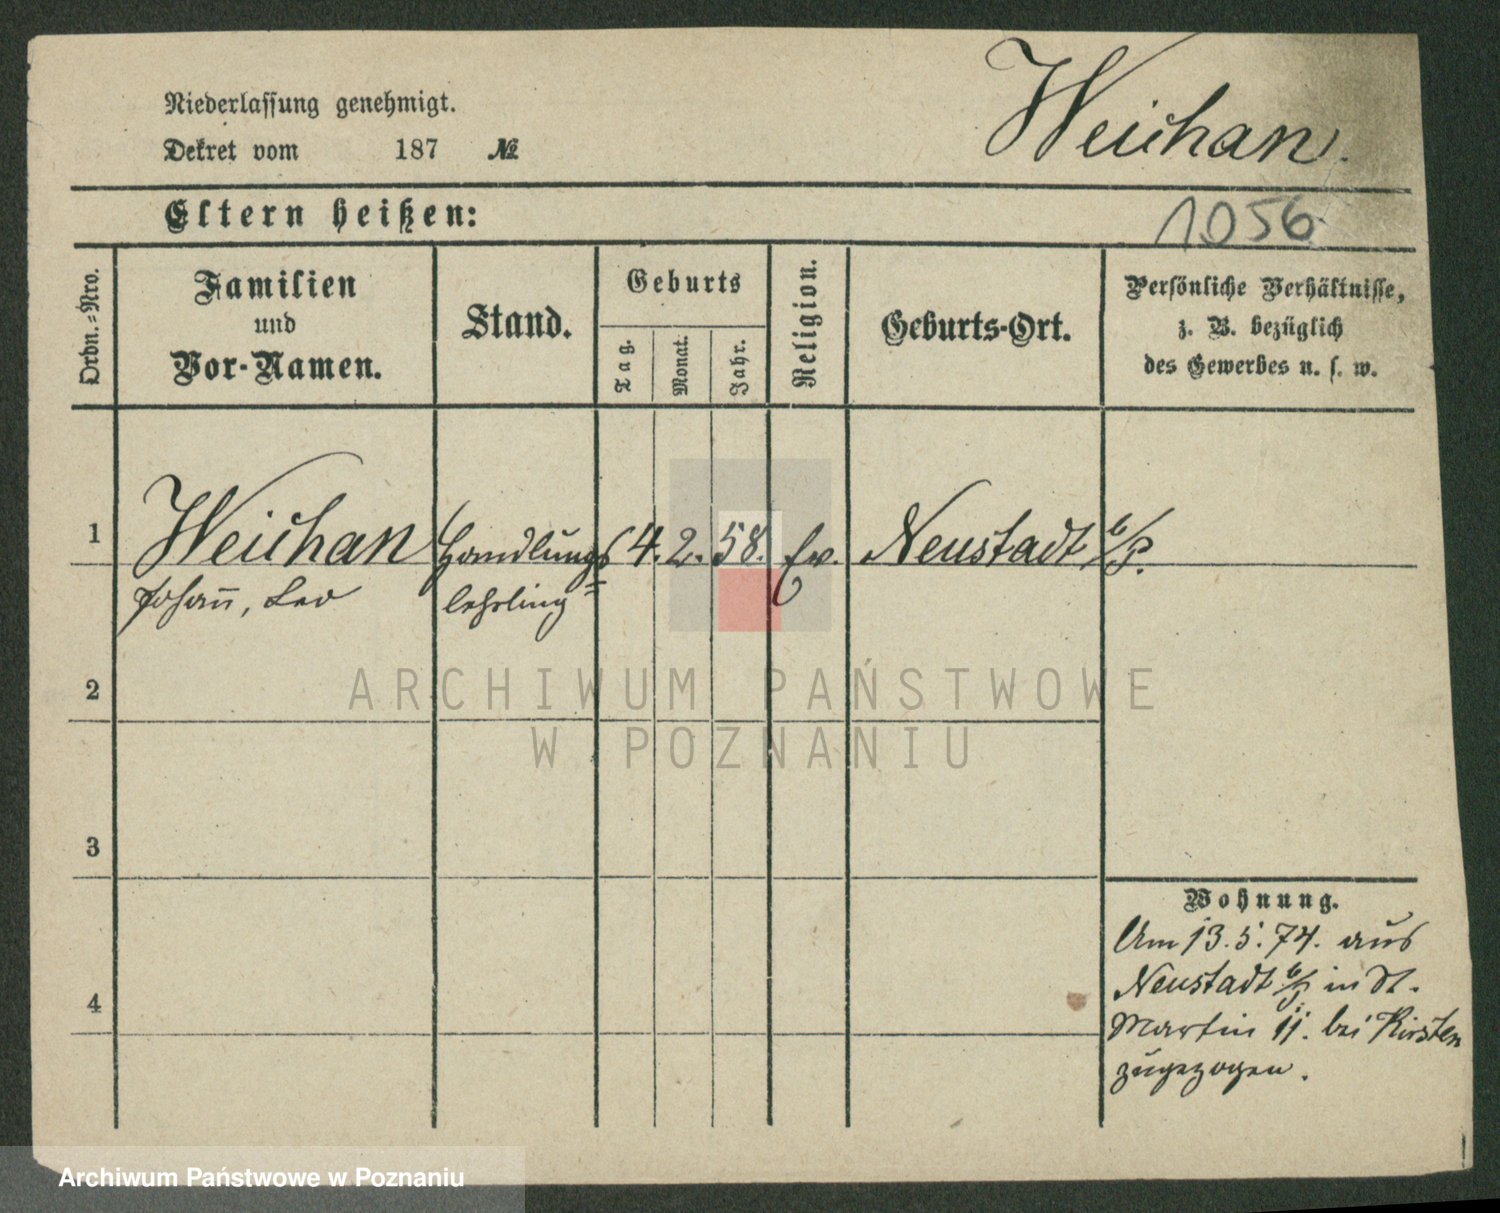 Weichan.
Niederlassung genehmigt.
Dekret vom 187 №
Eltern heißen:
1056
Ordn.-Nro.
Familien
und
Vor-Namen.
Stand.
Geburts
Tag.
Monat.
Jahr.
Religion.
Geburts-Ort.
Persönliche Verhältnisse,
z. B. bezüglich
des Gewerbes u. s. w.
1 Weichan Handlungs 4. 2. 58. Ev. Neustadt b/P.
Johañ, Leo lehrling
2
3
4
Wohnung.
Am 13. 5. 74. aus
Neustadt b/P in St.
Martin 11. bei Kirsten
zugezogen.
ARCHIWUM PAŃSTWOWE
W POZNANIU
Archiwum Państwowe w Poznaniu